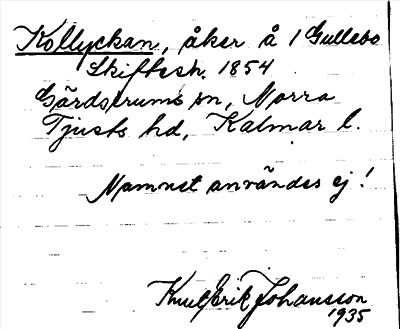 Kollyckan, åker å 1 Gullebo
Skiftesh. 1854
Gärdserums sn, Norra
Tjusts hd, Kalmar l.
Namnet användes ej!
Knut Erik Johansson
1935